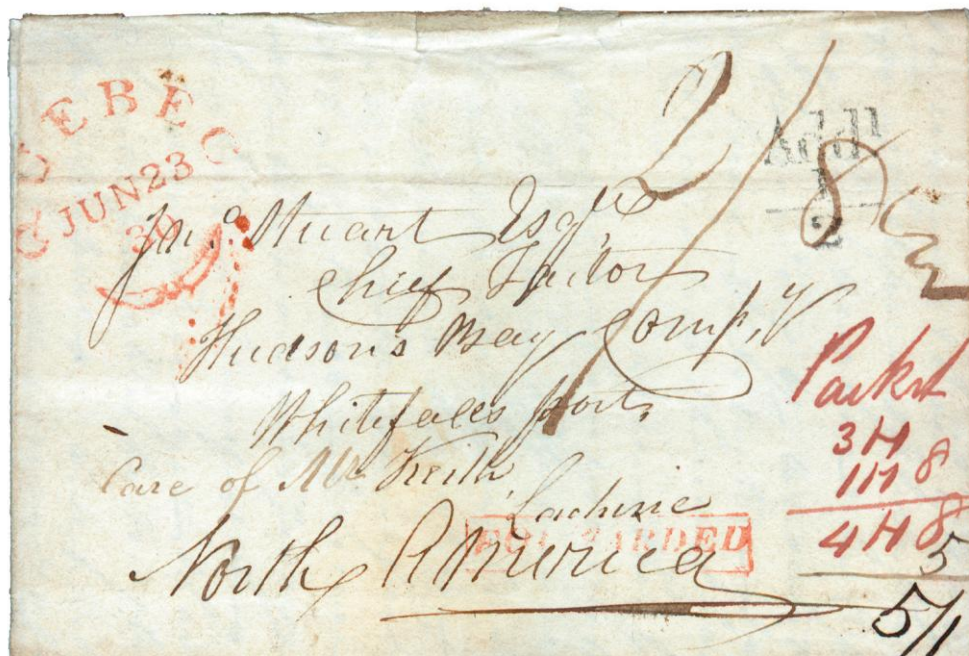 QUEBEC
JUN 23
2/8
Addl
1
2
Jno. Stuart Esqre
Chief Factor
Hudson's Bay Compy
Whitefalls port,
Care of Mr Keith
Lachine
FORWARDED
North America
Packet
3 H
1 H 8
4 H 8
5
5/1